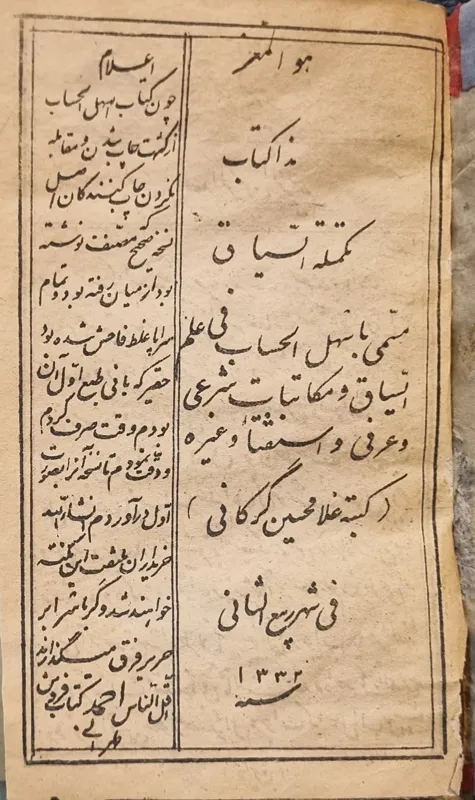 هو المعز
هذا کتاب
تکملة السیاق
مسمی باسهل الحساب فی علم
السیاق و مکاتبات شرعی
و عرفی و استفتأ و غیره
(کتبه غلامحسین گرکانی)
فی شهر ربیع الثانی
سنه ۱۳۳۲
اعلام
چون کتاب اسهل الحساب
از کثرت چاپ شدن و مقابله
نکردن چاپ کنندگان اصل
نسخه صحیح که مصنف نوشته
بود از میان رفته بود و تمام
سراپا غلط فاحش شده بود
حقیر که بانی طبع اول آن
بودم وقت صرف کردم
و دقت نمودم تا نسخه آنرا بصورت
اول درآوردم انشاء الله
خریداران ملتفت این نکته
خواهند شد و کرباس را بر
حریر فرق میگذارند
اقل الناس احمد کتابفروش